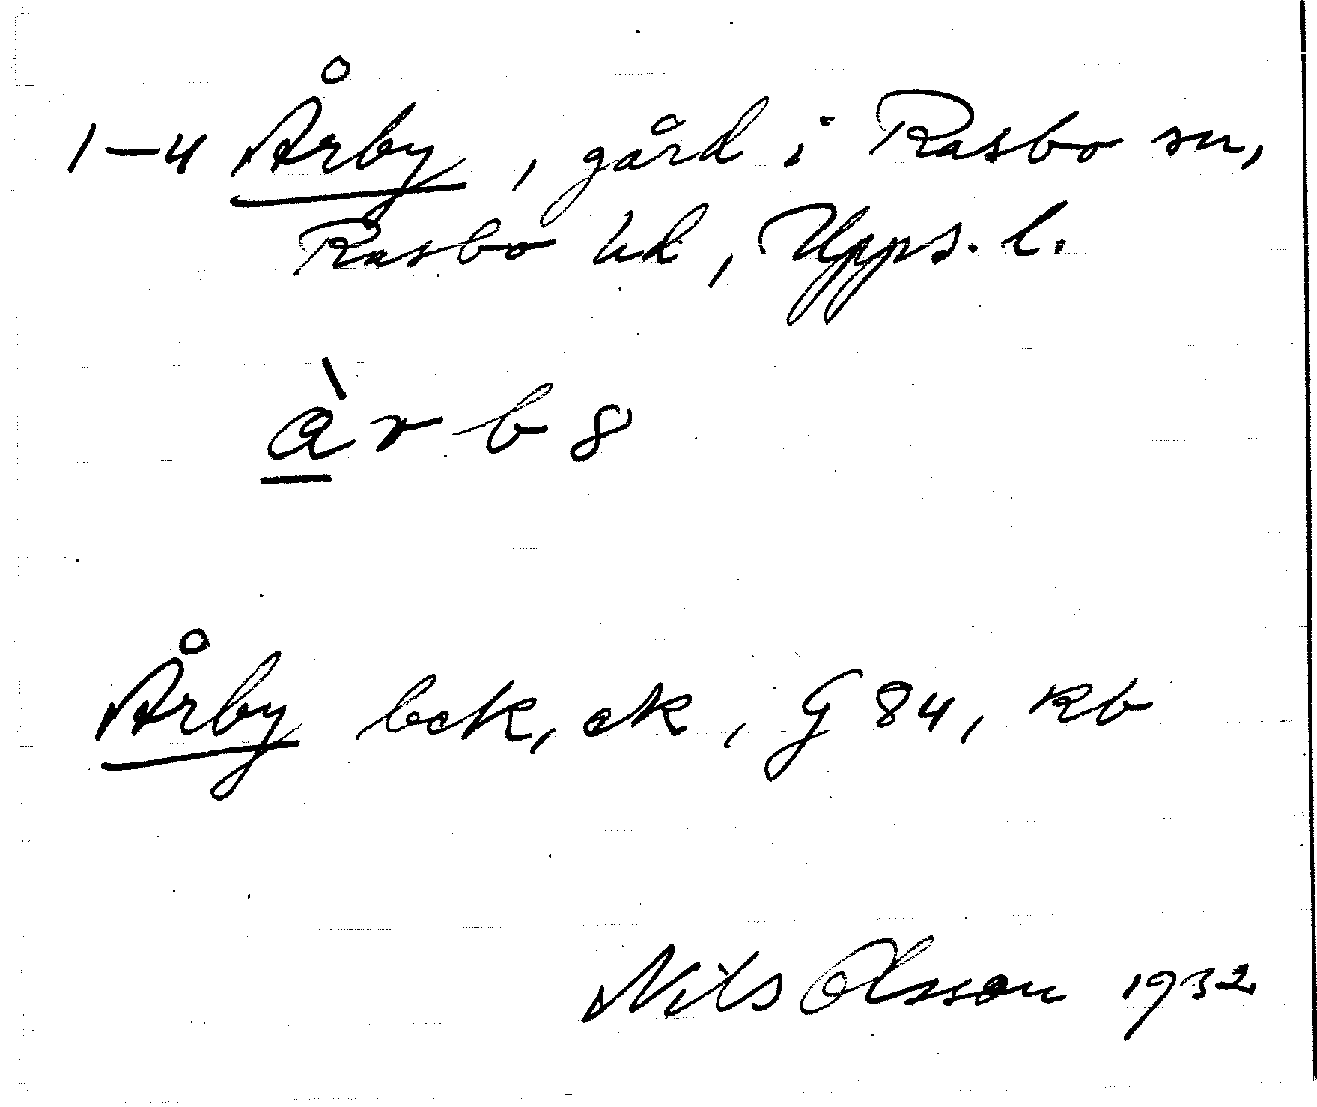 1–4 Årby, gård i Rasbo sn,
Rasbo hd, Upps. l.
àrb8
Årby bek, ek, G 84, kb
Nils Olsson 1932